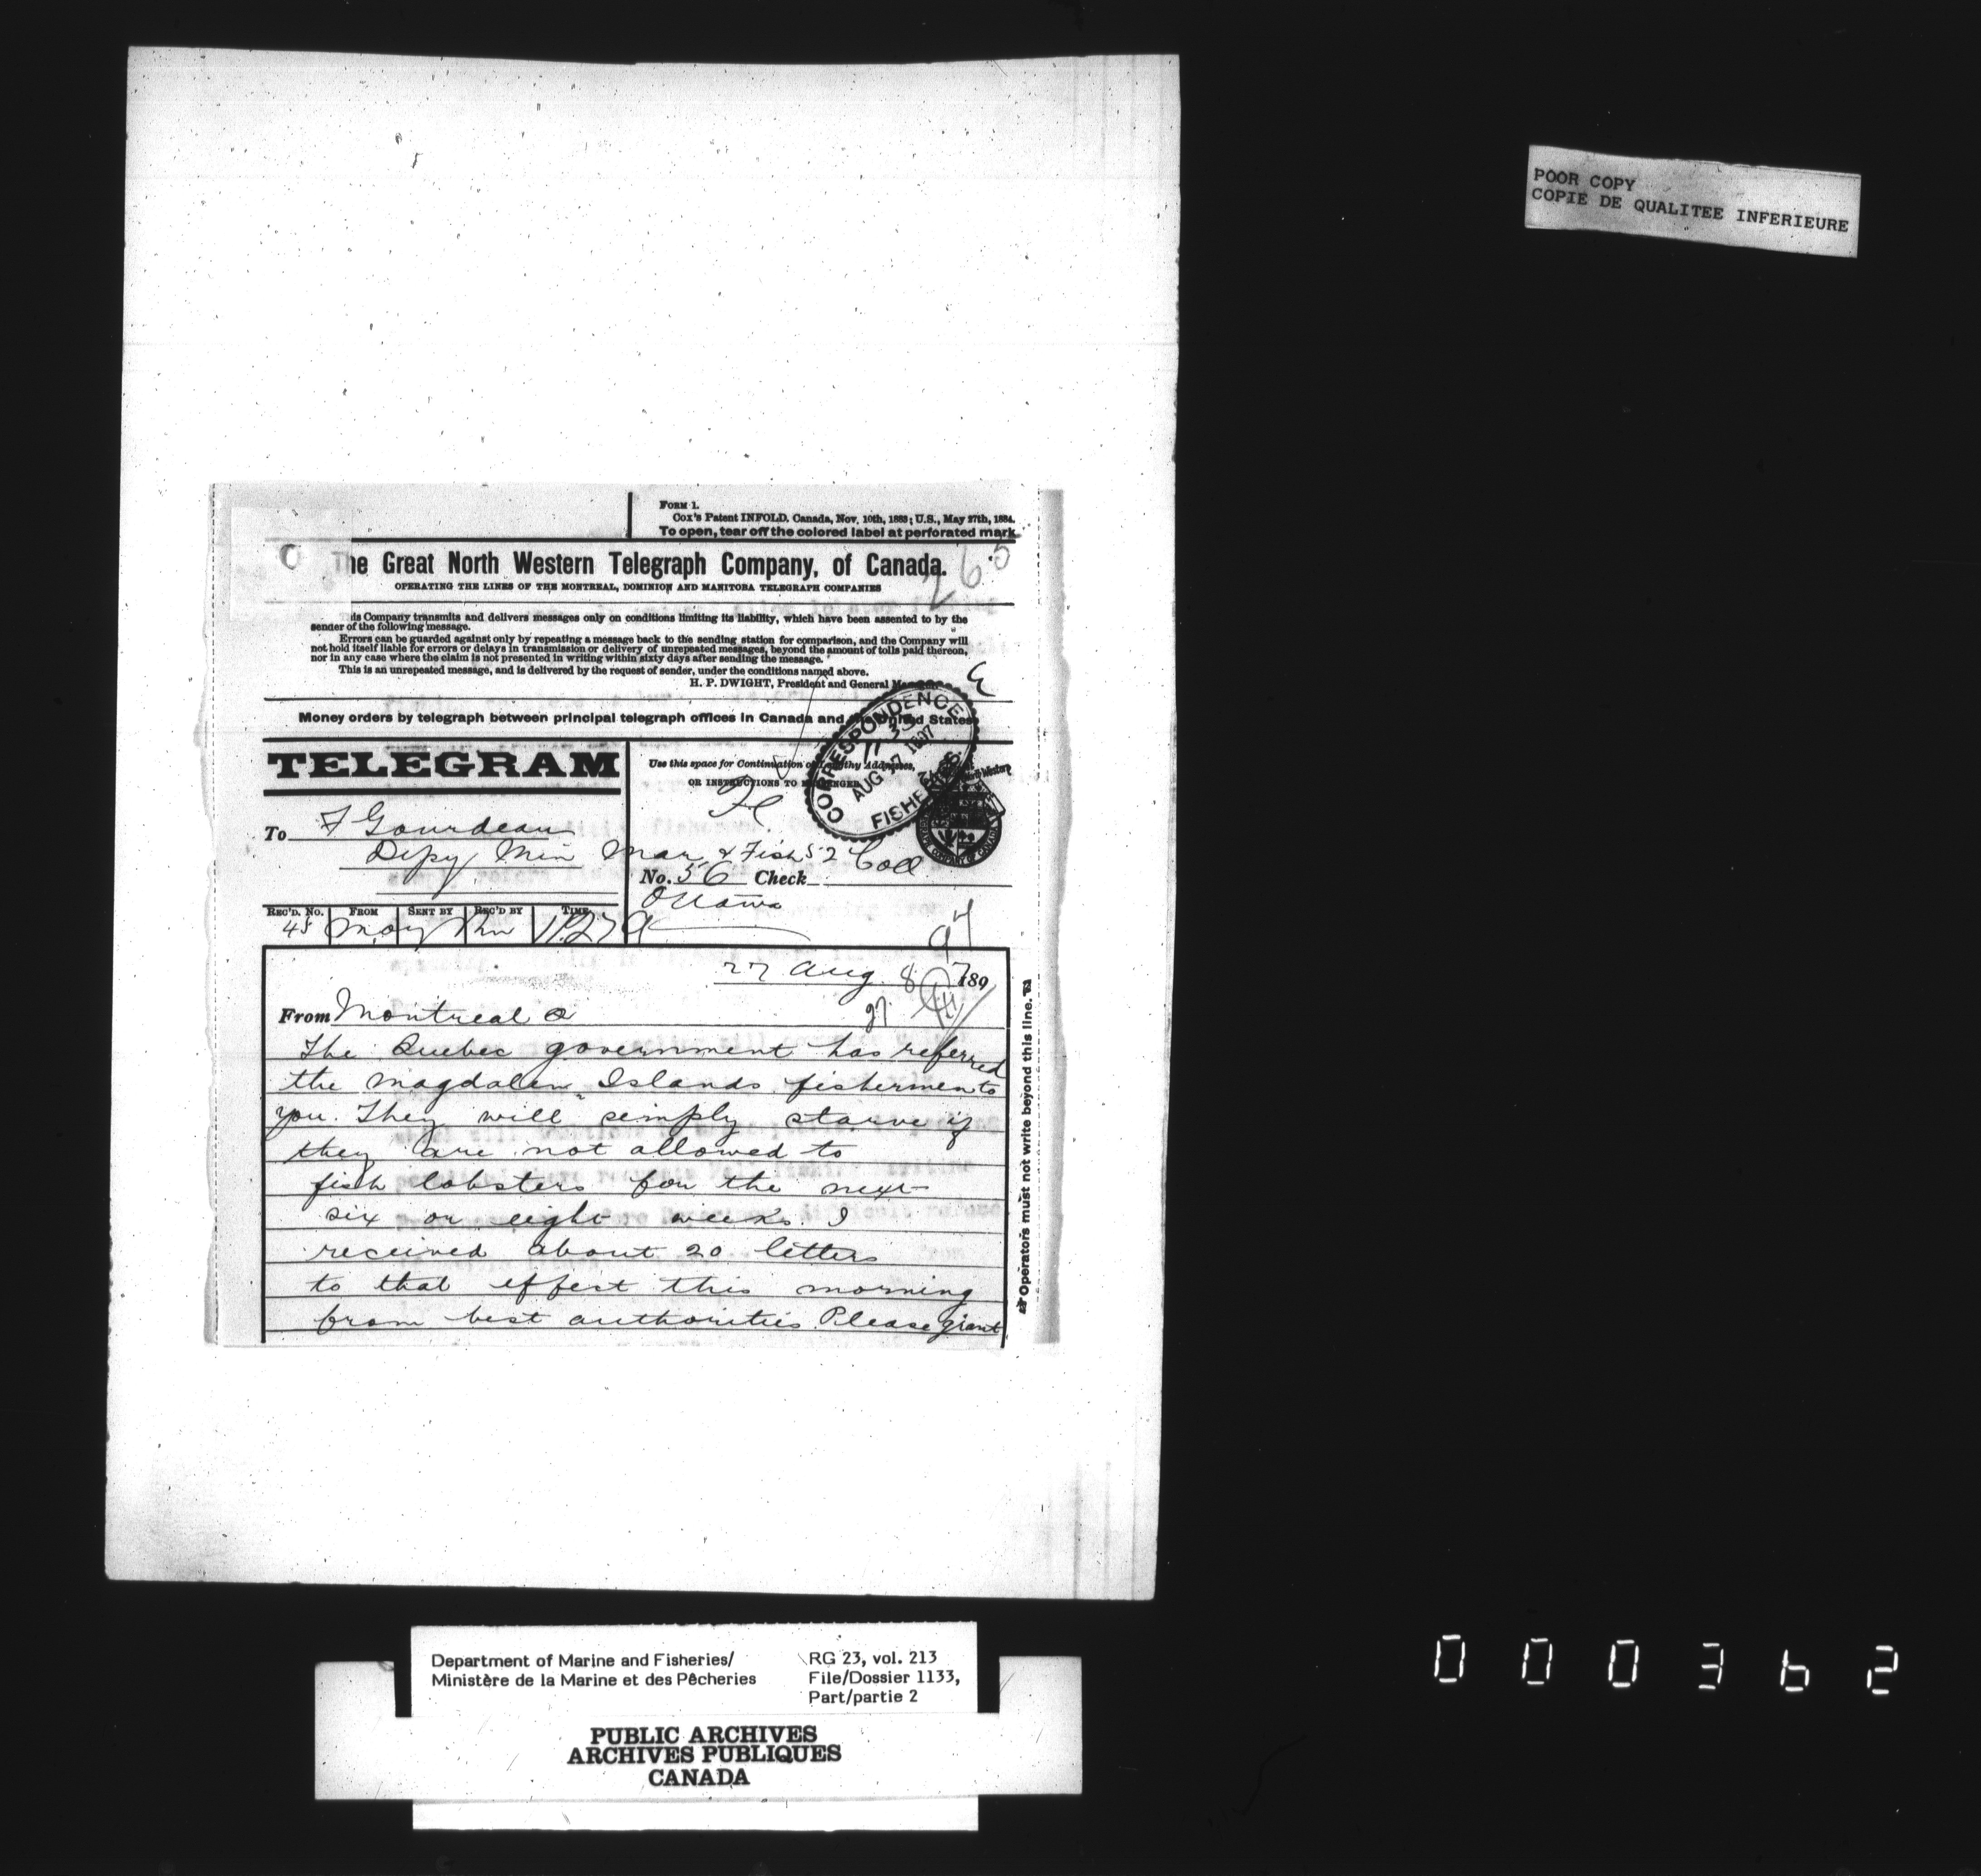 POOR COPY
COPIE DE QUALITEE INFERIEURE
FORM 1.
Cox's Patent INFOLD. Canada, Nov. 10th, 1883; U.S., May 27th, 1884.
To open, tear off the colored label at perforated mark
265
The Great North Western Telegraph Company, of Canada.
OPERATING THE LINES OF THE MONTREAL, DOMINION AND MANITOBA TELEGRAPH COMPANIES
his Company transmits and delivers messages only on conditions limiting its liability, which have been assented to by the
sender of the following message.
Errors can be guarded against only by repeating a message back to the sending station for comparison, and the Company will
not hold itself liable for errors or delays in transmission or delivery of unrepeated messages, beyond the amount of tolls paid thereon,
nor in any case where the claim is not presented in writing within sixty days after sending the message.
This is an unrepeated message, and is delivered by the request of sender, under the conditions named above.
H. P. DWIGHT, President and General Manager
Money orders by telegraph between principal telegraph offices in Canada and the United States
TELEGRAM
Use this space for Continuation of Lengthy Addresses,
OR INSTRUCTIONS TO MESSENGER
CORRESPONDENCE
AUG 27 1897
FISHERIES.
To F Gourdeau
Depy Min Mar & Fish 52 Coll
No. 56 Check
Ottawa
REC'D. No. FROM SENT BY REC'D BY TIME
45
27 Aug 189
97
From Montreal Q
The Quebec government has referred
the Magdalen Islands fishermen to
you. They will simply starve if
they are not allowed to
fish lobsters for the next
six or eight weeks. I
received about 20 letters
to that effect this morning
from best authorities Please grant
Operators must not write beyond this line.
Department of Marine and Fisheries/
Ministère de la Marine et des Pêcheries
RG 23, vol. 213
File/Dossier 1133,
Part/partie 2
PUBLIC ARCHIVES
ARCHIVES PUBLIQUES
CANADA
000362